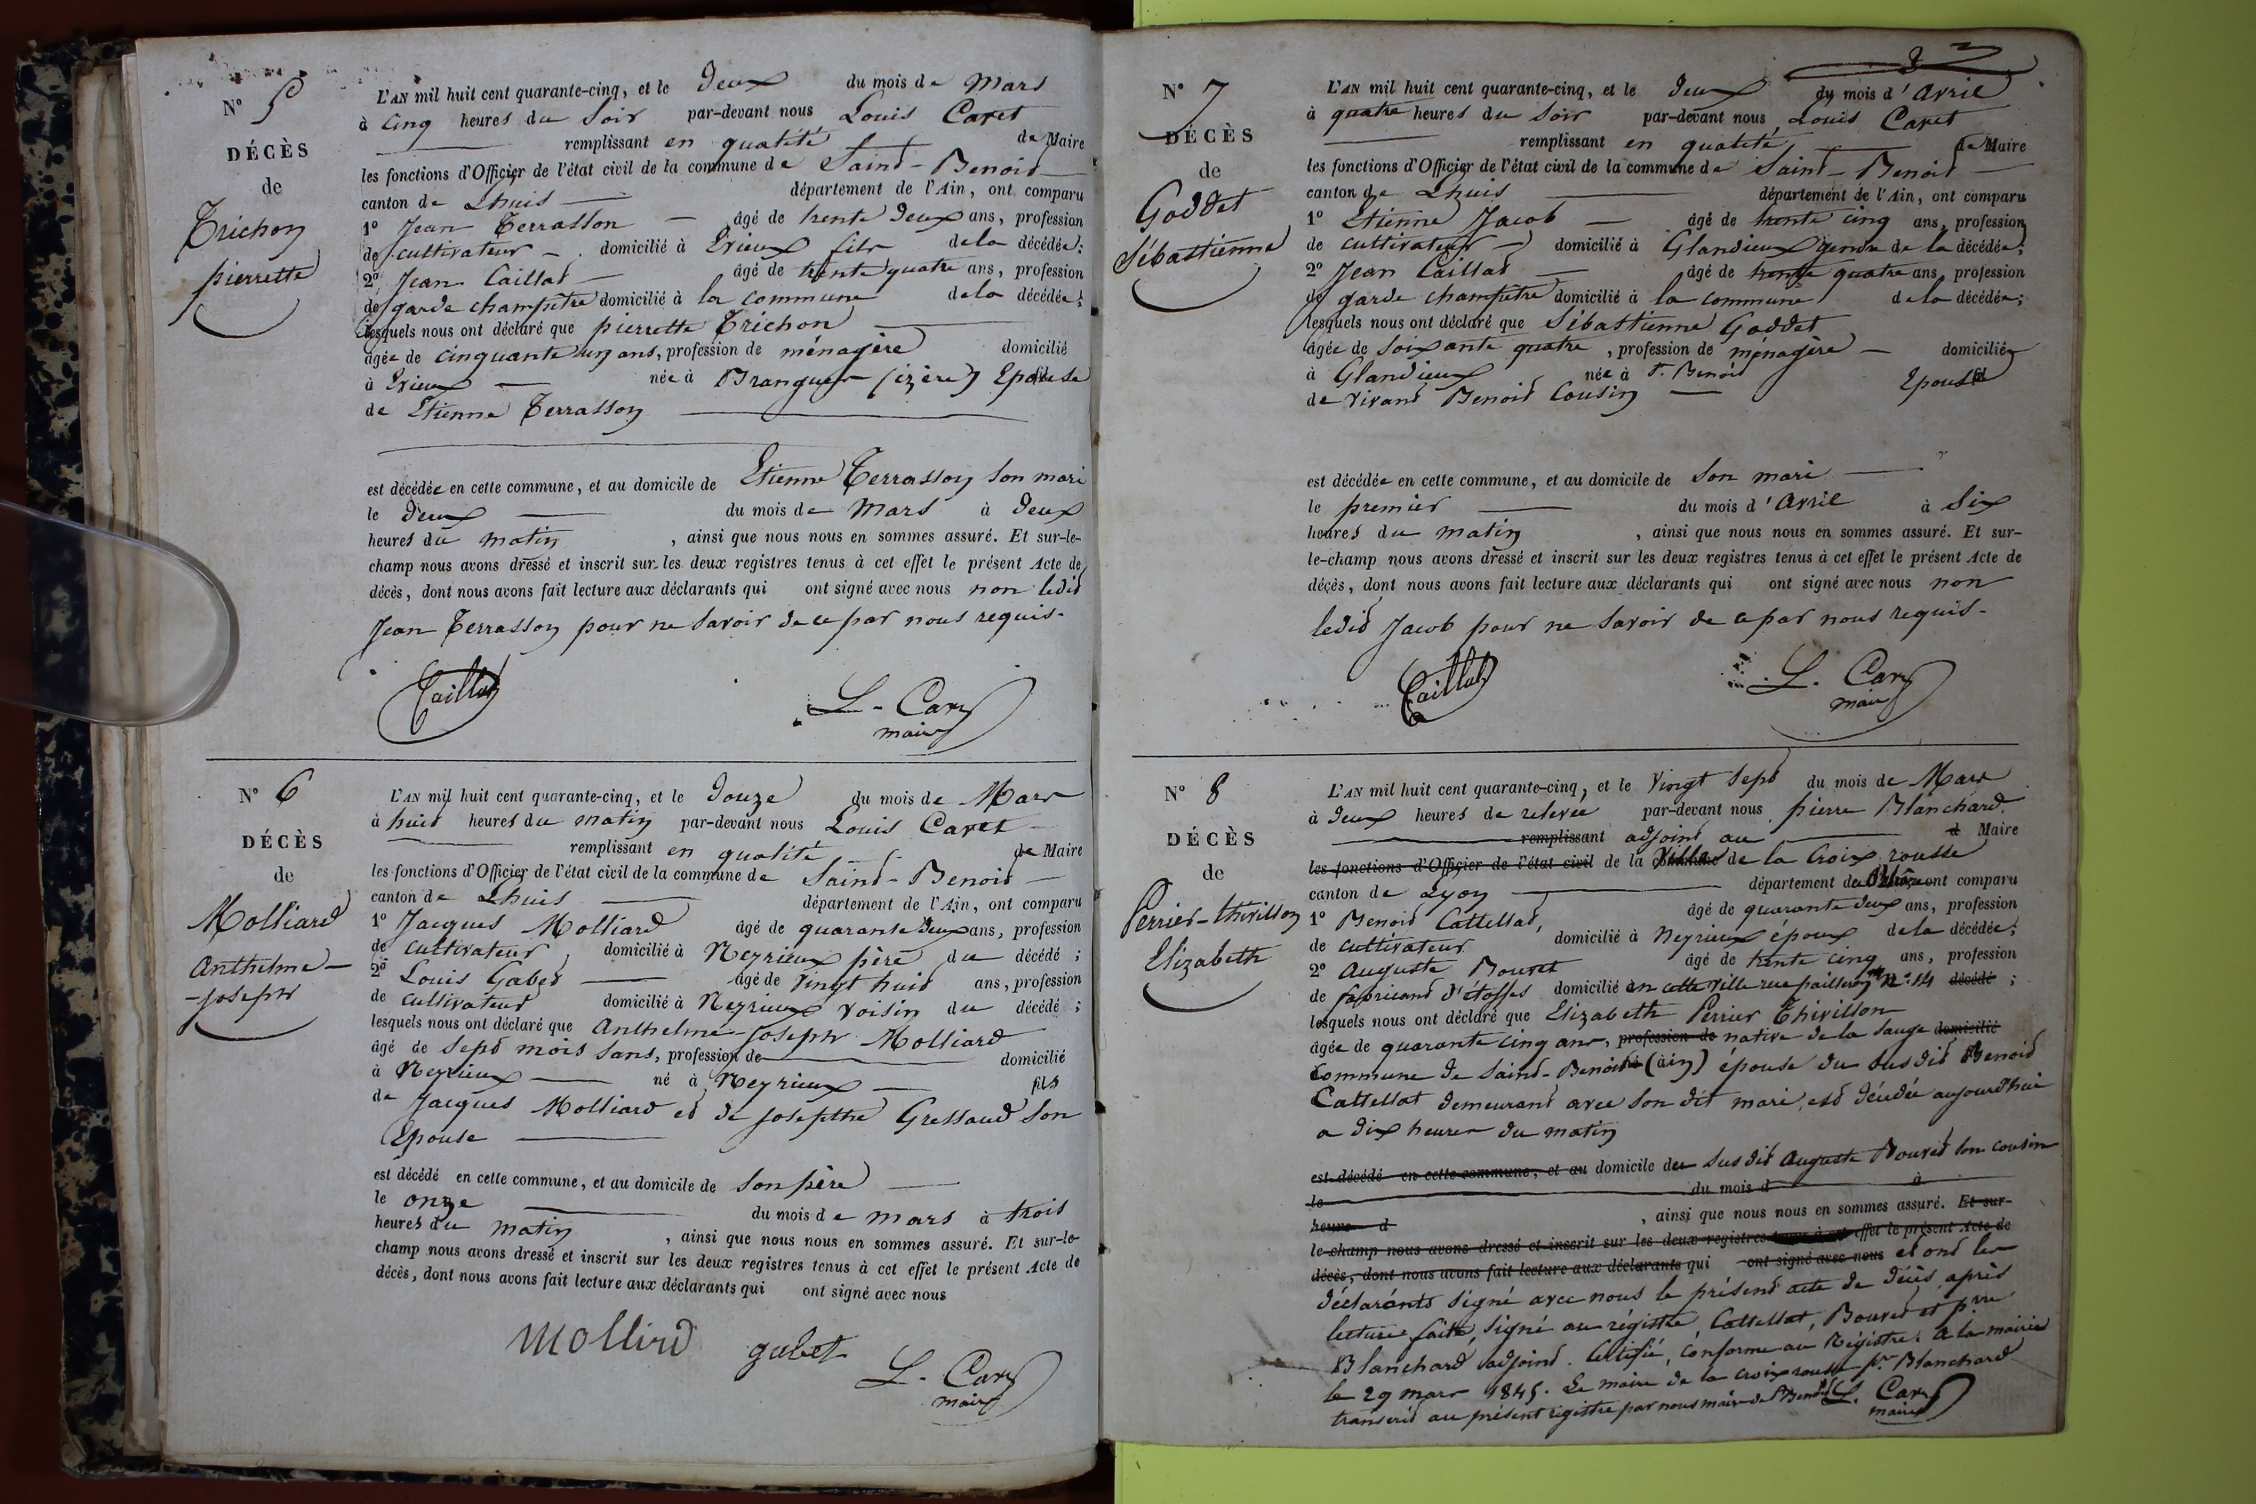 N° 5
DÉCÈS
de
Trichon
pierrette
L'AN mil huit cent quarante-cinq, et le deux du mois de Mars
à cinq heures du Soir par-devant nous Louis Caret
remplissant en qualité de Maire
les fonctions d'Officier de l'état civil de la commune de Saint-Benoit
canton de Lhuis département de l'Ain, ont comparu
1° Jean Terrasson âgé de trente deux ans, profession
de cultivateur domicilié à Evieux fils de la décédée;
2° Jean Caillat âgé de trente quatre ans, profession
de garde champêtre domicilié à la commune de la décédée;
lesquels nous ont déclaré que pierrette Trichon
âgée de cinquante un ans, profession de ménagère domicilié
à Evieux née à Brangues (izère) Epouse
de Etienne Terrasson
est décédée en cette commune, et au domicile de Etienne Terrasson son mari
le deux du mois de Mars à deux
heures du matin , ainsi que nous nous en sommes assuré. Et sur-le-
champ nous avons dressé et inscrit sur les deux registres tenus à cet effet le présent Acte de
décès, dont nous avons fait lecture aux déclarants qui ont signé avec nous non ledit
Jean Terrasson pour ne savoir de ce par nous requis.
Caillat
L. Caret
maire
N° 6
DÉCÈS
de
Molliard
Anthelme-
-joseph
L'AN mil huit cent quarante-cinq, et le douze du mois de Mars
à huit heures du matin par-devant nous Louis Caret
remplissant en qualité de Maire
les fonctions d'Officier de l'état civil de la commune de Saint-Benoit
canton de Lhuis département de l'Ain, ont comparu
1° Jacques Molliard âgé de quarante deux ans, profession
de cultivateur domicilié à Neyrieux père du décédé ;
2° Louis Gabet âgé de vingt huit ans, profession
de cultivateur domicilié à Neyrieux voisin du décédé ;
lesquels nous ont déclaré que Anthelme-joseph Molliard
âgé de sept mois sans, profession de domicilié
à Neyrieux né à Neyrieux fils
de Jacques Molliard et de josephte Gressaud son
Epouse
est décédé en cette commune, et au domicile de son père
le onze du mois de mars à trois
heures du matin , ainsi que nous nous en sommes assuré. Et sur-le-
champ nous avons dressé et inscrit sur les deux registres tenus à cet effet le présent Acte de
décès, dont nous avons fait lecture aux déclarants qui ont signé avec nous
Mollird gabet
L. Caret
maire
3
N° 7
DÉCÈS
de
Goddet
Sébastienne
L'AN mil huit cent quarante-cinq, et le deux du mois d'Avril
à quatre heures du Soir par-devant nous Louis Caret
remplissant en qualité de Maire
les fonctions d'Officier de l'état civil de la commune de Saint-Benoit
canton de Lhuis département de l'Ain, ont comparu
1° Etienne Jacob âgé de trente cinq ans, profession
de cultivateur domicilié à Glandieux gendre de la décédée;
2° Jean Caillat âgé de trente quatre ans, profession
de garde champêtre domicilié à la commune de la décédée;
lesquels nous ont déclaré que Sébastienne Goddet
âgée de soixante quatre , profession de ménagère domiciliée
à Glandieux née à St. Benoit Epouse
de vivant Benoit Cousin
est décédée en cette commune, et au domicile de son mari
le premier du mois d'Avril à six
heures du matin , ainsi que nous nous en sommes assuré. Et sur-
le-champ nous avons dressé et inscrit sur les deux registres tenus à cet effet le présent Acte de
décès, dont nous avons fait lecture aux déclarants qui ont signé avec nous non
ledit Jacob pour ne savoir de ce par nous requis.
Caillat
L. Caret
maire
N° 8
DÉCÈS
de
Perrier-thivillon
Elizabeth
L'AN mil huit cent quarante-cinq, et le vingt sept du mois de Mars
à deux heures de relevée par-devant nous pierre Blanchard
remplissant adjoint au d Maire
les fonctions d'Officier de l'état civil de la ville de la Croix rousse
canton de Lyon département du Rhône ont comparu
1° Benoit Cattellat, âgé de quarante deux ans, profession
de cultivateur domicilié à Neyrieux époux de la décédée;
2° Auguste Bouvet âgé de trente cinq ans, profession
de fabricant d'étoffes domicilié en cette ville rue pailleron n° 14 décédé ;
lesquels nous ont déclaré que Elizabeth Perrier Thivillon
âgée de quarante cinq ans, profession de native de la Sauge domicilié
Commune de Saint-Benoit (ain) épouse du susdit Benoit
Cattellat demeurant avec son dit mari, est décédée aujourd'hui
a dix heures du matin
est décédé en cette commune, et au domicile du susdit Auguste Bouvet son cousin
le du mois d à
heure d , ainsi que nous nous en sommes assuré. Et sur-
le-champ nous avons dressé et inscrit sur les deux registres tenus à cet effet le présent Acte de
décès, dont nous avons fait lecture aux déclarants qui ont signé avec nous et ont les
déclarants signé avec nous le présent acte de décès après
lecture faite, signé au régistre, Cattellat, Bouvet et pierre
Blanchard adjoint. Certifié, conforme au Régistre: à la mairie
le 29 mars 1845. Le maire de la croix rousse pr. Blanchard
transcrit au présent régistre par nous maire de St Benoit L. Caret
maire